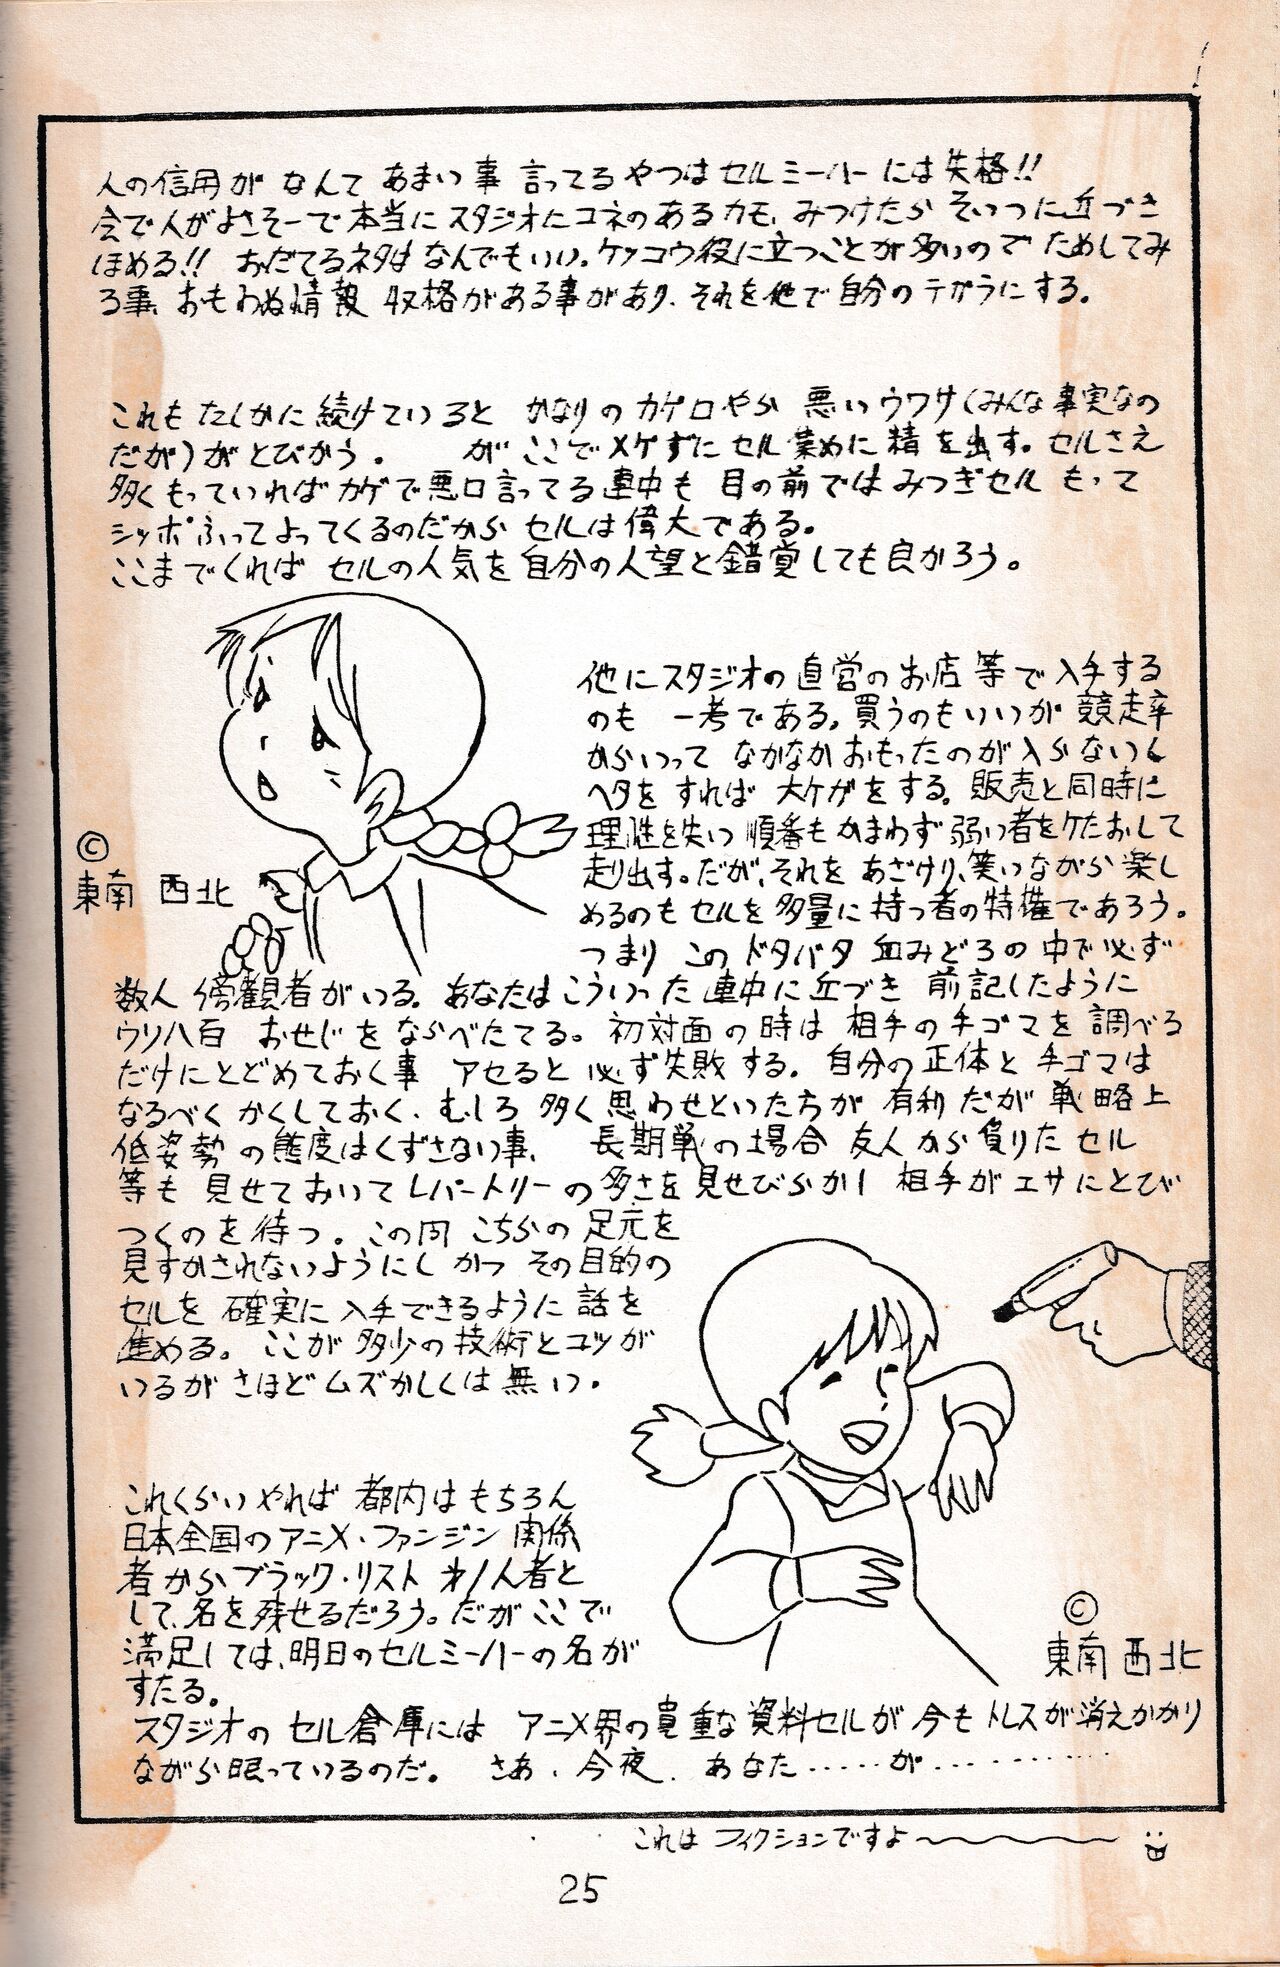 人の信用が なんて あまい事 言ってる やつは セルミーハーには失格!!
会で人がよさそーで本当にスタジオにコネのあるカモ、みつけたら そいつに近づき
ほめる!! おだてるネタは なんでもいい。ケッコウ役に立つことが多いので ためしてみ
る事、おもわぬ情報 収格がある事があり、それを他で自分のテがらにする。
これも たしかに続けていると かなりの カゲ口やら 悪いウワサ(みんな事実なの
だが)が とびかう。 が ここで メゲずに セル集めに 精を出す。セルさえ
多くもっていれば カゲで悪口言ってる連中も 目の前では みつぎセル もって
シッポふってよってくるのだから セルは偉大である。
ここまでくれば セルの人気を自分の人望と錯覚しても良かろう。
他にスタジオの直営のお店等で入手する
のも 一考である。買うのもいいが 競走率
からいって なかなかおもったのが入らないし
ヘタをすれば 大ケガをする。販売と同時に
理性を失い 順番もかまわず 弱い者をケたおして
走り出す。だが、それを あざけり、笑いながら 楽し
めるのも セルを多量に持つ者の特権であろう。
つまり この ドタバタ 血みどろの中で必ず
数人 傍観者がいる。あなたはこういった連中に近づき 前記したように
ウソ八百 おせじをならべたてる。初対面の時は 相手の手ゴマを調べる
だけにとどめておく事 アセると 必ず失敗する。自分の正体と手ゴマは
なるべく かくしておく、むしろ 多く思わせといた方が 有利だが 戦略上
低姿勢の態度はくずさない事、 長期戦の場合 友人から 負りた セル
等も 見せておいて レパートリーの多さを見せびらかし 相手がエサにとび
つくのを待つ。この間 こちらの足元を
見すかされないようにし かつ その目的の
セルを 確実に入手できるように 話を
進める。ここが多少の技術とコツが
いるが さほど ムズかしくは 無い。
©
東南 西北
これくらい やれば 都内は もちろん
日本全国のアニメ・ファンジン 関係
者から ブラック・リスト オ1人者と
して、名を残せるだろう。だが ここで
満足しては、明日のセルミーハーの名が
すたる。
スタジオの セル倉庫には アニメ界の貴重な資料セルが 今も トレスが消えかかり
ながら眠っているのだ。 さあ、今夜、あなた・・・・・が・・・・・・・・・・
©
東南 西北
これは フィクションですよ〜〜〜〜
25